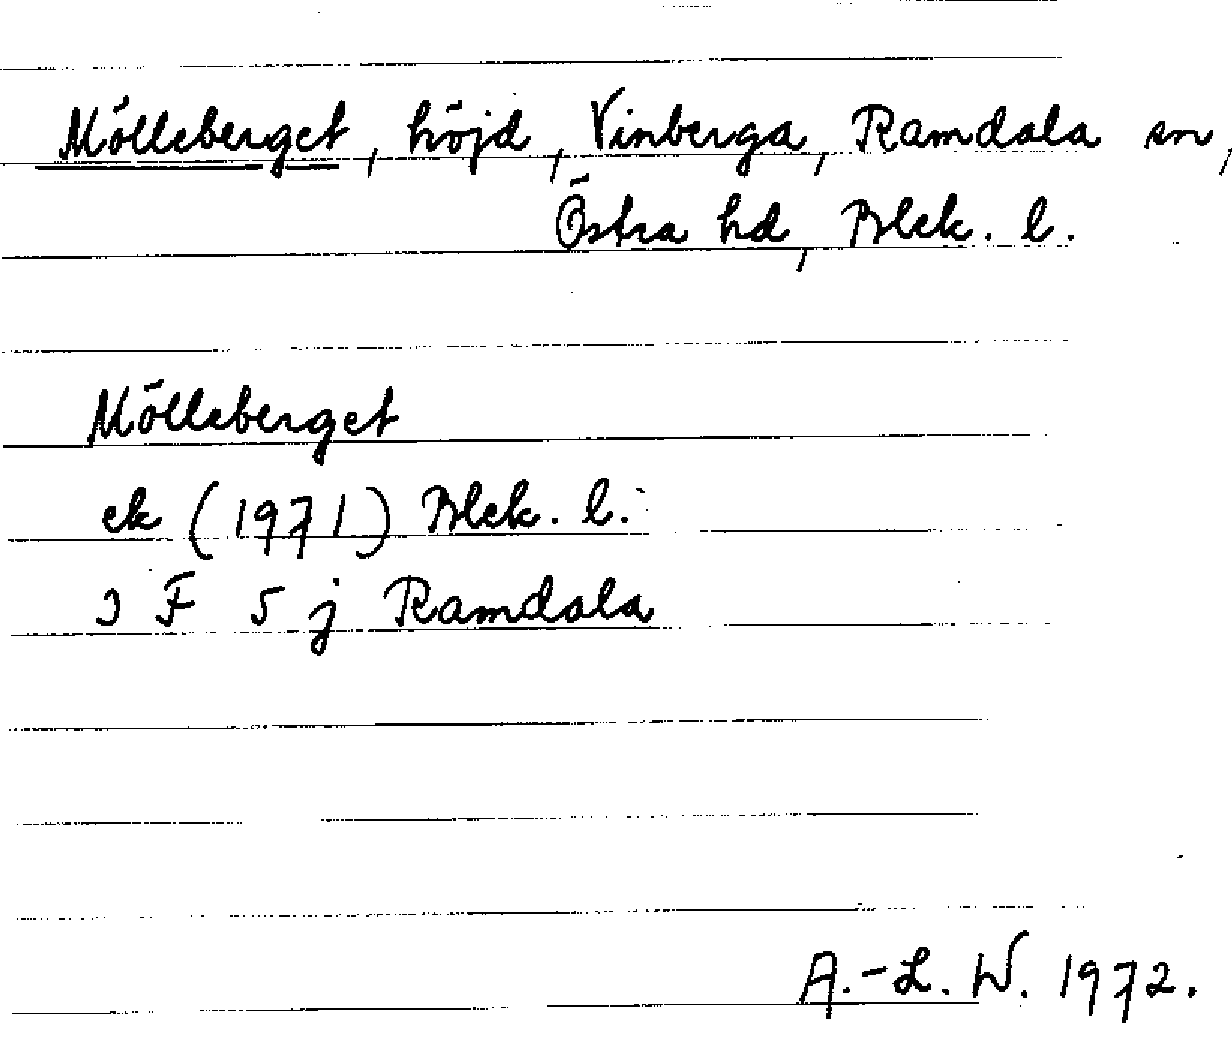 Mölleberget, höjd, Vinberga, Ramdala sn,
Östra hd, Blek. l.
Mölleberget
ek (1971) Blek. l.
3 F 5 j Ramdala
A.-L. W. 1972.